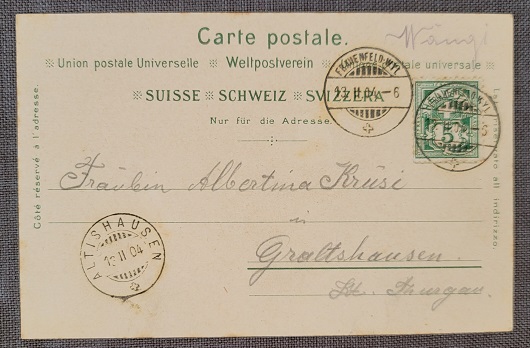 Wängi
Carte postale.
Union postale Universelle Weltpostverein postale universale
SUISSE SCHWEIZ SVIZZERA
Nur für die Adresse.
Côté réservé à l'adresse.
FRAUENFELD-WYL
13.II.04.–6
5
Fräulein Albertina Krüsi
in
Graltshausen.
Kt. Thurgau.
ALTISHAUSEN
13.II.04
all indirizzo.